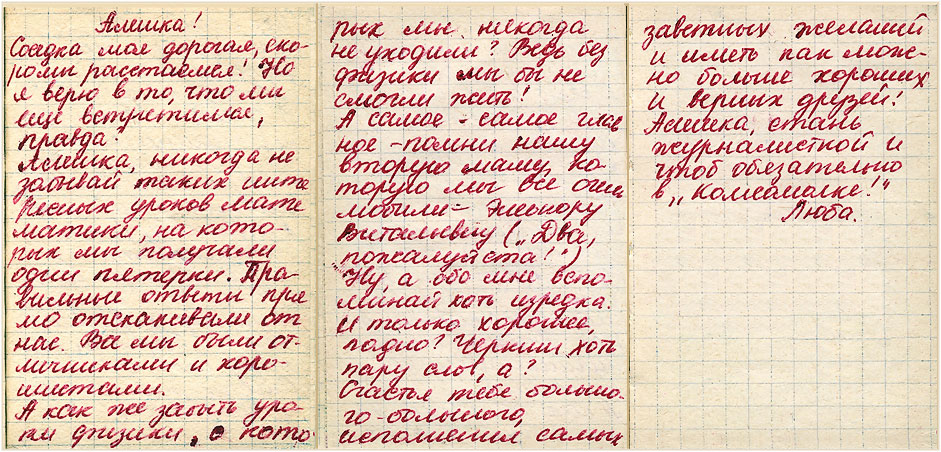 Алешка!
Соседка моя дорогая, ско-
ро мы расстаемся! Но
я верю в то, что мы
еще встретимся,
правда?
Алешка, никогда не
забывай таких инте
ресных уроков мате
матики, на кото-
рых мы получали
одни пятерки. Пра-
вильные ответы пря
мо отскакивали от
нас. Все мы были от-
личниками и хоро-
шистами.
А как же забыть уро-
ки физики, с кото-
рых мы никогда
не уходили? Ведь без
физики мы бы не
смогли жить!
А самое-самое глав
ное - помни нашу
вторую маму, ко
торую мы все очень
любили - Элеонору
Витальевну („Два,
пожалуйста!")
Ну, а обо мне вспо-
минай хоть изредка.
И только хорошее,
ладно? Черкни хоть
пару слов, а?
Счастья тебе большо-
го-большого,
исполнения самых
заветных желаний
и иметь как мож-
но больше хороших
и верных друзей!
Алешка, стань
журналисткой и
чтоб обязательно
в „Комсомолке!"
Люба.